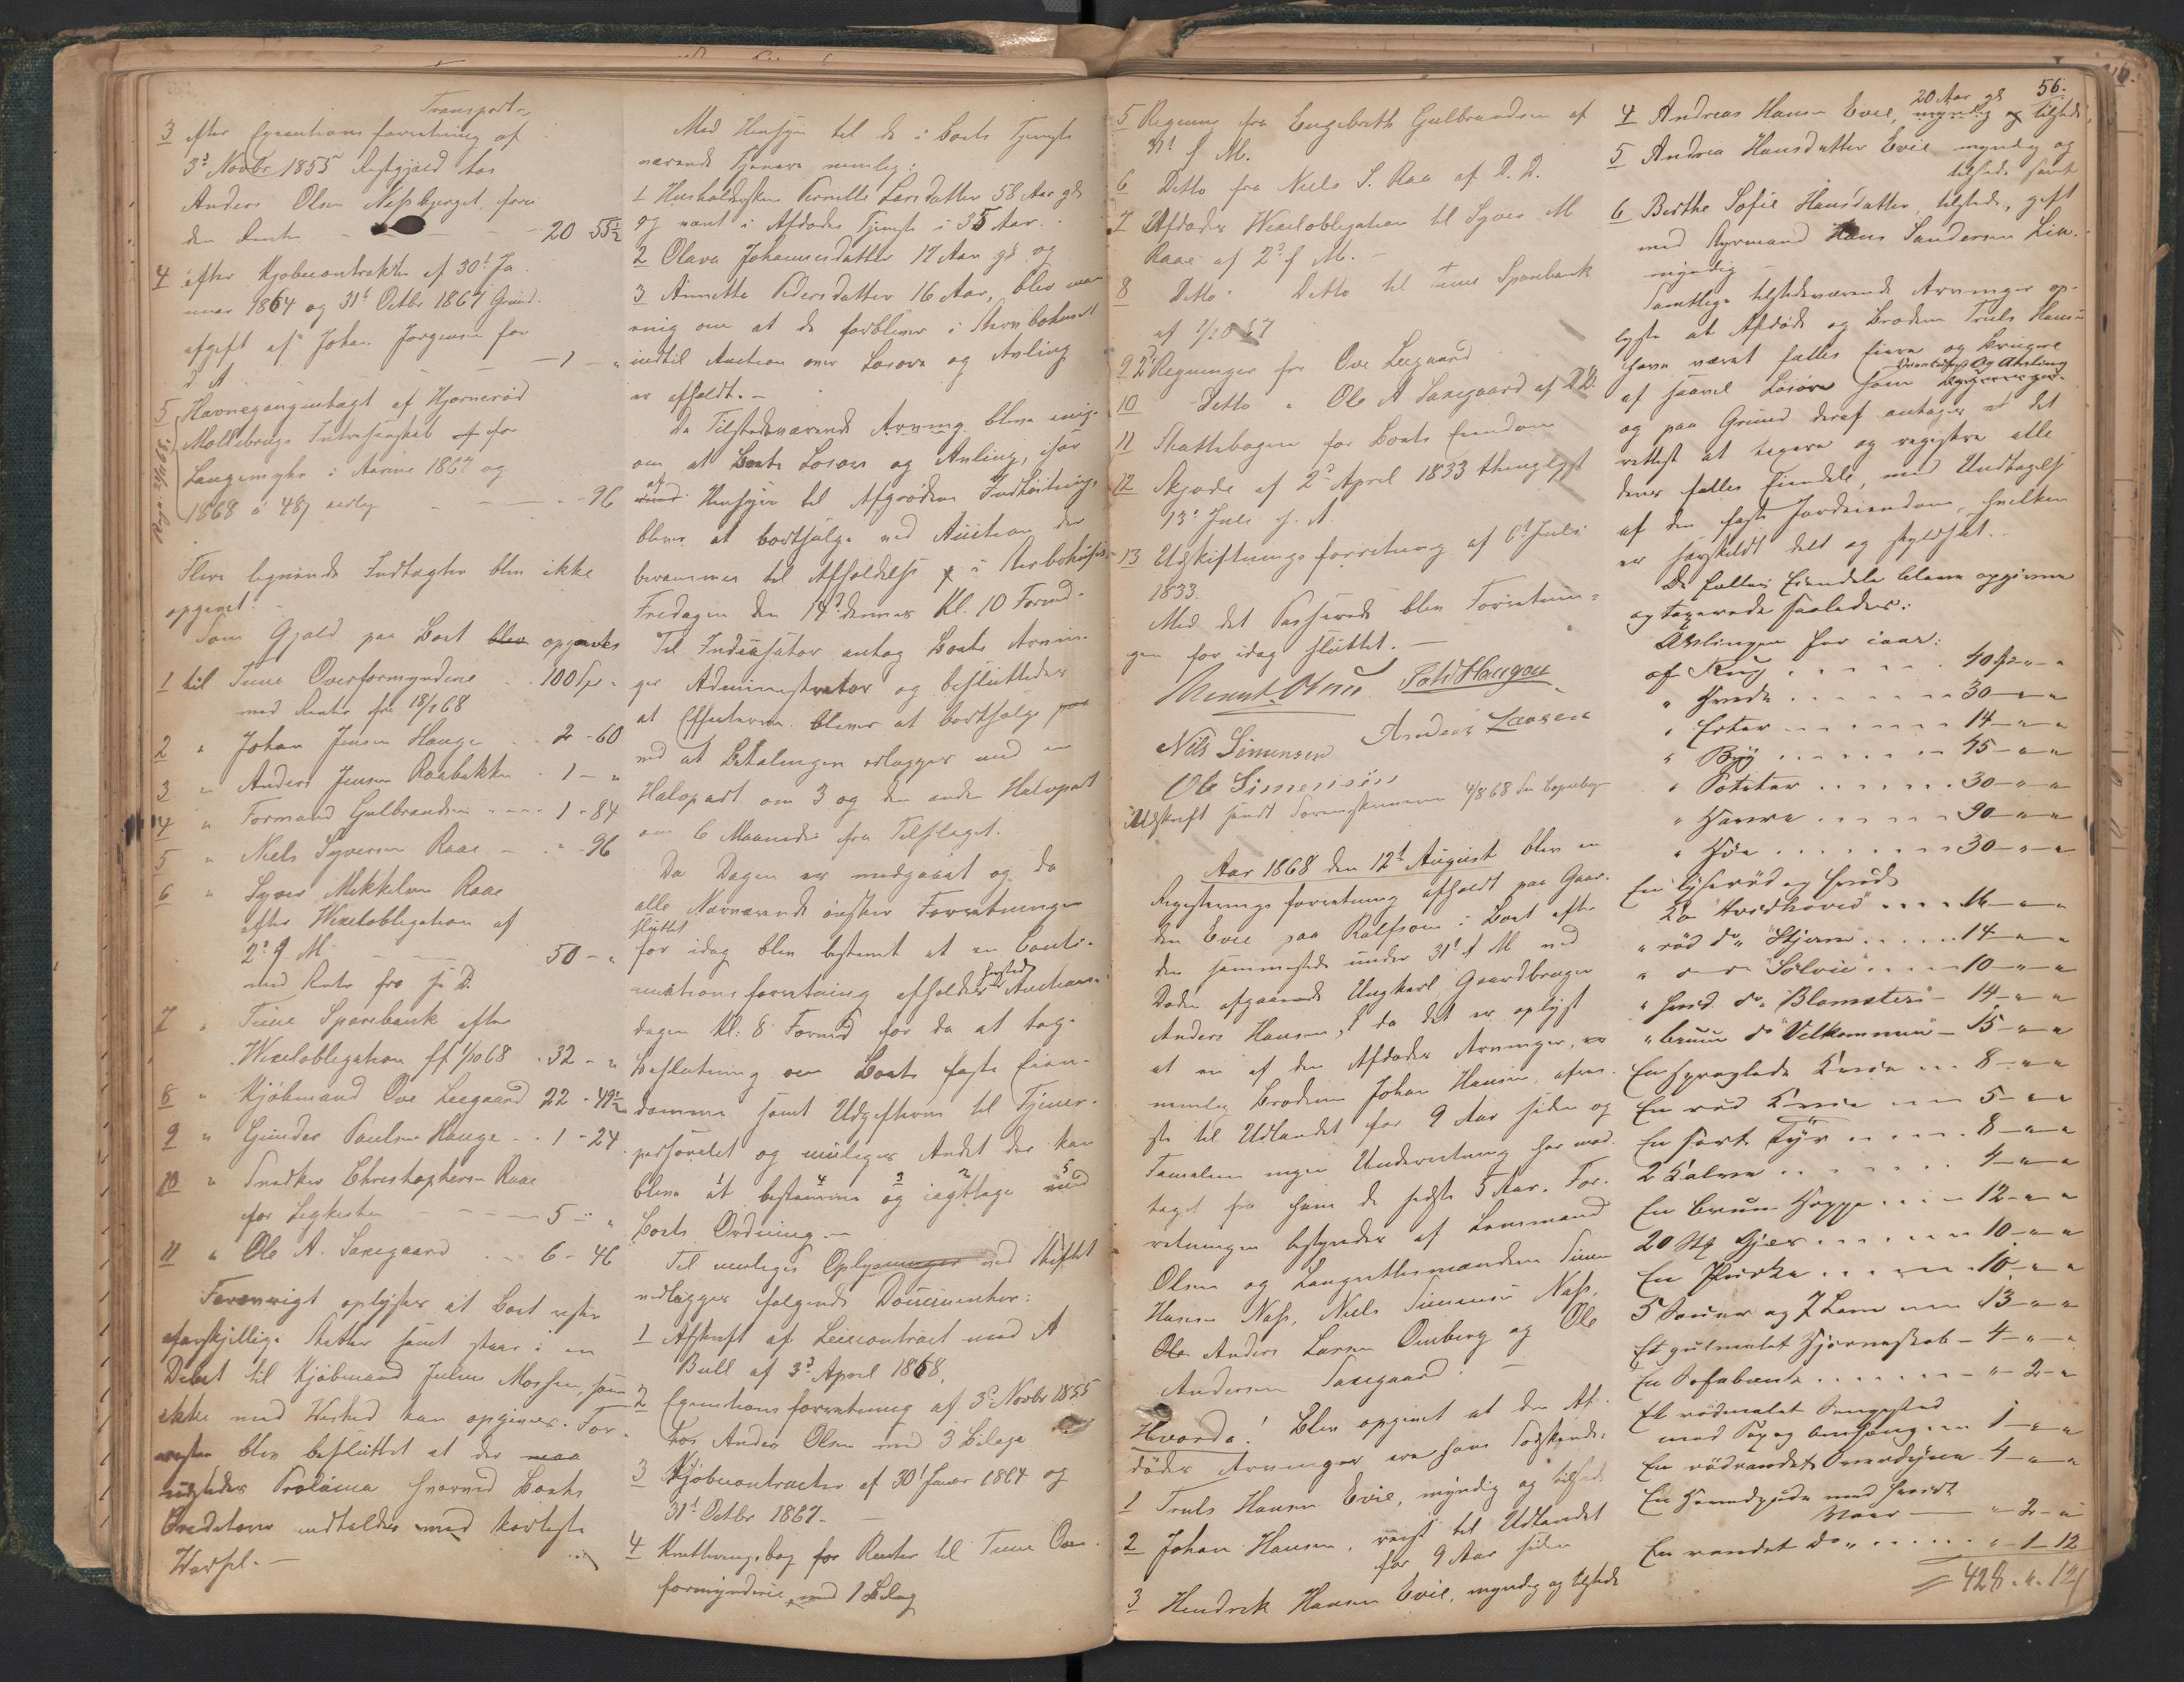 Transport
3 efter Executionsforretning af
3d Novbr 1855 Restgjæld hos
Anders Olsen Næssbjerget foru-
den Renter - - - 20 55½
4 efter Kjøbecontrakter af 30t Ja-
nuar 1864 og 31t Octbr 1867 Grund-
afgift af Johan Jørgensen for
d. A. - 1 - "
5 Havnegangindtægt af Hjørnerød
Møllebrugs Interesentskab for
Langemyhr i Aarene 1867 og
1868 á 48ß aarlig - - - 96
Flere lignende Indtægter blev ikke
opgivet.
Som Gjæld paa Boet blev opgaves
1 til Tune Overformynderie - 100 Spd "
med Renter fra 18/7 68
2 " Johan Jensen Hauge - 2 - 60
3 " Anders Jensen Raabakke - 1 - "
4 " Formand Gulbrandsen - 1 - 84
5 " Niels Syversen Raae - " - 96
6 " Syver Mikkelsen Raae
efter Wexelobligation af
2d f. M. - - 50 - "
med Rente fra s. D.
7 " Tune Sparebank efter
Wexelobligation ff 1/10 68 - 32 - "
8 " Kjøbmand Ove Leegaard 22 - 49½
9 " Gunder Paulsen Hauge - 1 - 24
10 " Snedker Christophersen Raae
for Ligkisten - - - 5 - "
11 " Ole A. Saxegaard - 6 - 46
Forøvrigt oplystes at Boet rester
forskjellige Skatter samt staar i en
Debet til Kjøbmand Julius Mossin, som
ikke med Vished kan opgives. For-
resten blev besluttet at der maa
udstedes Proclama hvorved Boets
Creditorer indkaldes med korteste
Varsel. -
Med Hensyn til de i Boets Tjeneste
værende Tjenere nemlig:
1 Husholdersken Pernille Larsdatter 58 Aar gl
og været i Afdødes Tjeneste i 35 Aar.
2 Olava Johannesdatter 17 Aar gl og
3 Annette Pedersdatter 16 Aar, blev man
enig om at de forbliver i Stervbohuset
indtil Auction over Løsøre og Avling
er afholdt. -
De Tilstedeværende Arving. bleve enige
om at Boets Løsøre og Avling, især
af Hensyn til Afgrødens Indhøstning,
bliver at bortsælge ved Auction der
berammes til Afholdelse i Stervbohuset
Fredagen den 14d dennes Kl. 10 Formd.
Til Indcassator antog Boets Arvin-
ger Administrator og besluttedes
at Effecterne bliver at bortsælge paa
ved at Betalingen erlægges med en
Halvpart om 3 og den anden Halvpart
om 6 Maaneder fra Tilslaget.
Da Dagen er medgaaet og da
alle Nærværende ønsker Forretningen
sluttet
for idag blev bestemt at en Conti-
nuationsforretning afholdes Auctions-
dagen Kl: 8 Formd for da at tage
Beslutning om Boets faste Eien-
domme samt Udgifterne til Tjener-
personalet og muligens Andet der kan
blive at bestemme og iagttage med
Boets Ordning. -
Til muliges Oplysninger ved Skiftet
vedlægges følgende Documenter:
1 Afskrift af Leiecontract med A
Bull af 3d April 1868.
2 Executionsforretning af 3d Novbr 1855
hos Anders Olsen med 3 Bilage
3 Kjøbecontracter af 30t Januar 1864 og
31t Octbr 1867. -
4 Kvitteringsbog for Renter til Tune Over-
formynderie, med 1 Bilag
5 Regning fra Engebreth Gulbrandsen af
31t f. M.
6 Ditto fra Niels S. Raa af D. D.
7 Afdødes Wexelobligation til Syver M
Raae af 2d f. M. -
8 Ditto Ditto til Tune Sparebank
af 1/10 67
9 2d Regninger fra Ove Leegaard
10 Ditto " Ole A Saxegaard af DD.
11 Skattebogen for Boets Eiendom
12 Skjøde af 2d April 1833 thinglyst
13d Juli s. A.
13 Udskiftningsforretning af 6t Juli
1833.
Med det Passerede blev Forretnin-
gen for idag sluttet. -
Nils Simensen Anders Larsen
Ole Simensøn
Udskrift sendt Sorenskriveren 4/8 68
Aar 1868 den 12t August blev en
Registreringsforretning afholdt paa Gaar-
den Evie paa Rolfsøen i Boet efter
den sammesteds under 31t f. M. ved
Døden afgaaende Ungkarl Gaardbruger
Anders Hansen, da det er oplyst
at en af den Afdødes Arvinger, er
nemlig Broderen Johan Hansen, afrei-
ste til Udlandet for 9 Aar siden og
Familien ingen Underretning har mod-
taget fra ham de sidste 5 Aar. For-
retningen bestyredes af Lensmand
Olsen og Laugrettesmændene Simen
Hansen Næss, Niels Simensen Næss,
Ole Anders Larsen Omberg og Ole
Andersen Saxegaard. -
Hvorda! Blev opgivet at den Af-
dødes Arvinger ere hans Sødskende:
1 Truls Hansen Evie, myndig og tilstede
2 Johan Hansen, reist til Udlandet
for 9 Aar siden
3 Hendrik Hansen Evie, myndig og tilstede
56.
20 Aar gl
4 Andreas Hansen Evie, myndig og tilstede,
5 Andrea Hansdatter Evie myndig og
tilstede samt
6 Berthe Sofie Hansdatter, tilstede, gift
med Styrmand Hans Sandersen Lie.
myndig -
Samtlige tilstedeværende Arvinger op-
lyste at Afdøde og Broderen Truls Hansen
have været fælles Eiere og Brugere
Besætning og Afvling
af saavel Løsøre som
og paa Grund deraf antages det
rettest at taxere og registrere alle
deres fælles Eiendele, med Undtagelse
af den faste Jordeiendom, hvilken
er særskildt delt og skyldsat. -
De fælles Eiendele bleve opgivne
og taxerede saaledes:
Avlingen for iaar:
af Rug . . . . . 40 Spd " - "
" Hvede . . . . . 30 - " - "
" Erter . . . . . 14 - " - "
" Byg . . . . . 45 - " - "
" Poteter . . . . . 30 - " - "
" Havre . . . . . 90 - " - "
" Høe . . . . . 30 - " - "
En lyserød og hvid
Ko "Hvidhoved" . . . . 16 - " - "
" rød do "Stjerne" . . . . 14 - " - "
" do do "Sølvie" . . . . 10 - " - "
" hvid do "Blomsterø" - 14 - " - "
" bruun do "Velkommen" - 15 - " - "
En spraglede Kvie . . . 8 - " - "
En rød Kvie . . . 5 - " - "
En sort Tyr . . . . 8 - " - "
2 Kalve . . . . . 4 - " - "
En bruun Hoppe . . . 12 - " - "
20 Stk Gjæs . . . . 10 - " - "
En Purke . . . . 10 - " - "
5 Souer og 7 Lam . . 13 - " - "
Et gulmalet Hjørneskab - 4 - " - "
En Sofabænk . . . . . " - 2 - "
Et rødmalet Sengested
med Tæg omhæng . . 1 - " - "
En rødrandet Overdyne - 4 - " - "
En Hovedpude med hvidt
Vaar - " - 2 - "
En randet do . . . . . " - 1 - 12
428 . 4 . 12ß